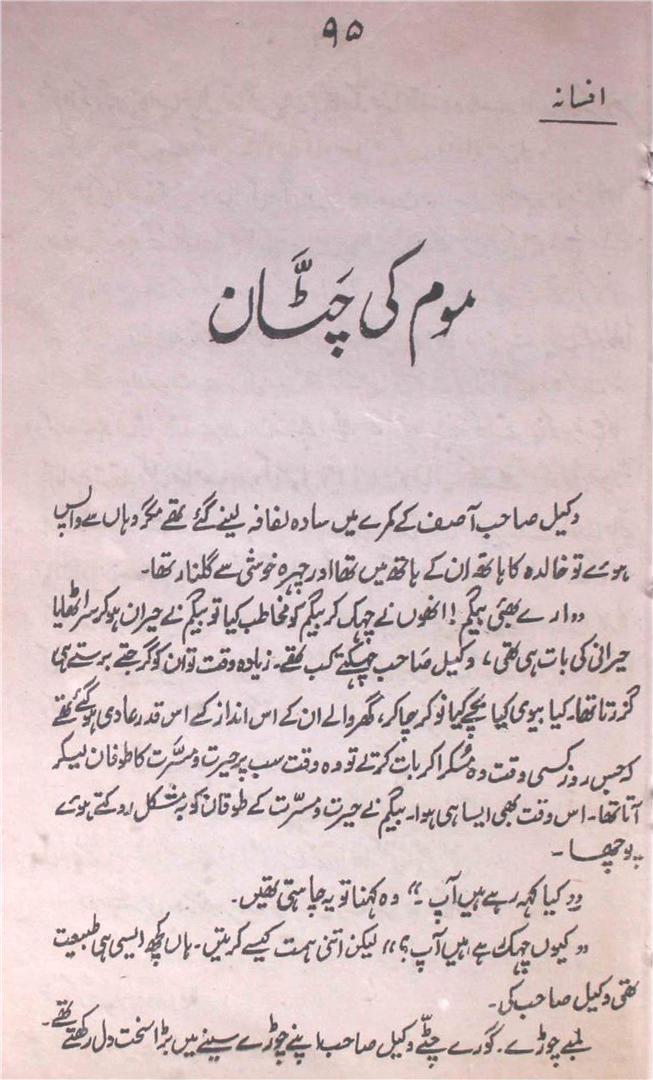 ۹۵
افسانہ
موم کی چَٹّان
وکیل صاحب آصف کے کمرے میں سادہ لفافہ لینے گئے تھے مگر وہاں سے واپس
ہوئے تو خالدہ کا ہاتھ ان کے ہاتھ میں تھا اور چہرہ خوشی سے گلنار تھا۔
”ارے بھئی بیگم! انھوں نے چہک کر بیگم کو مخاطب کیا تو بیگم نے حیران ہو کر سر اٹھایا
حیرانی کی بات ہی تھی، وکیل صاحب چہکتے کب تھے۔ زیادہ وقت تو ان کو گرجتے برستے ہی
گزرتا تھا۔ کیا بیوی کیا بچے کیا نوکر چاکر، گھر والے ان کے اس انداز کے اس قدر عادی ہو گئے تھے
کہ جس روز کسی وقت وہ مُسکرا کر بات کرتے تو وہ وقت سب پر حیرت و مسَرَّت کا طوفان لیکر
آتا تھا۔ اس وقت بھی ایسا ہی ہوا۔ بیگم نے حیرت و مسرّت کے طوفان کو بہ مشکل روکتے ہوئے
پوچھا۔
”کیا کہہ رہے ہیں آپ۔“ وہ کہنا تو یہ چاہتی تھیں۔
”کیوں چہک رہے ہیں آپ؟“ لیکن اتنی ہمت کیسے کرتیں۔ ہاں کچھ ایسی ہی طبیعت
تھی وکیل صاحب کی۔
لمبے چوڑے۔ گورے چٹّے وکیل صاحب اپنے چوڑے سینے میں بڑا سخت دل رکھتے تھے۔